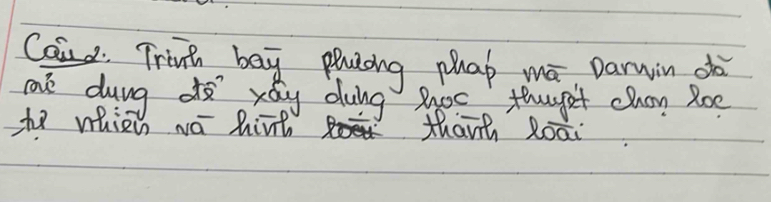 Câu 2. Trình bày phương pháp mà Darwin đã
dụng để xây dựng học thuyết chọn lọc
tự nhiên và hình thành loài.